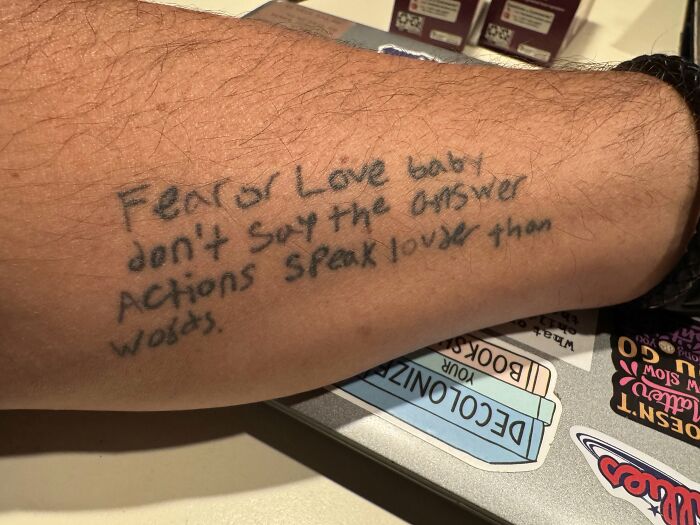 Fear or Love baby
don't say the answer
Actions speak louder than
words.
DECOLONIZE
YOUR
what
DOESN'T
Matter
W SLOW
U GO